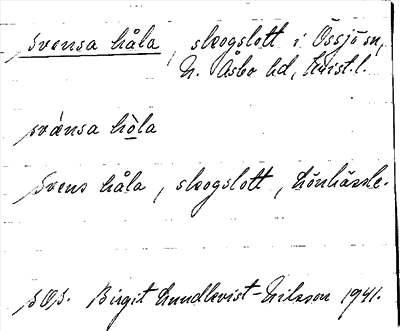 svensa håla, skogslott i Össjö sn,
N. Åsbo hd, Krist.l.
svȧnsa hòla
Svens håla, skogslott, Lönhässle.
SOS. Birgit Lundkvist-Nilsson 1941.